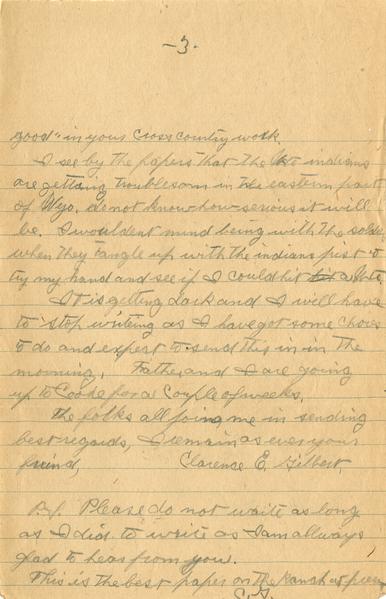 -3-
good" in your Cross Country work.
I see by the papers that the Ute indians
are getting troublesom in the eastern part
of Wyo. do not know how serious it will
be. I wouldent mind being with the
when they tangle up with the indians just to
try my hand and see if I could hit a Ute.
It is getting dark and I will have
to stop writing as I have got some Chores
to do and expect to send this in in the
morning. Father and I are going
up to Cooke for a Couple of weeks.
The folks all joing me in sending
best regards, I remain as ever your
friend, Clarence E. Gilbert.
P.S. Please do not waite as long
as I did to write as I am allways
glad to hear from you.
This is the best paper on the Ranch at
C.G.